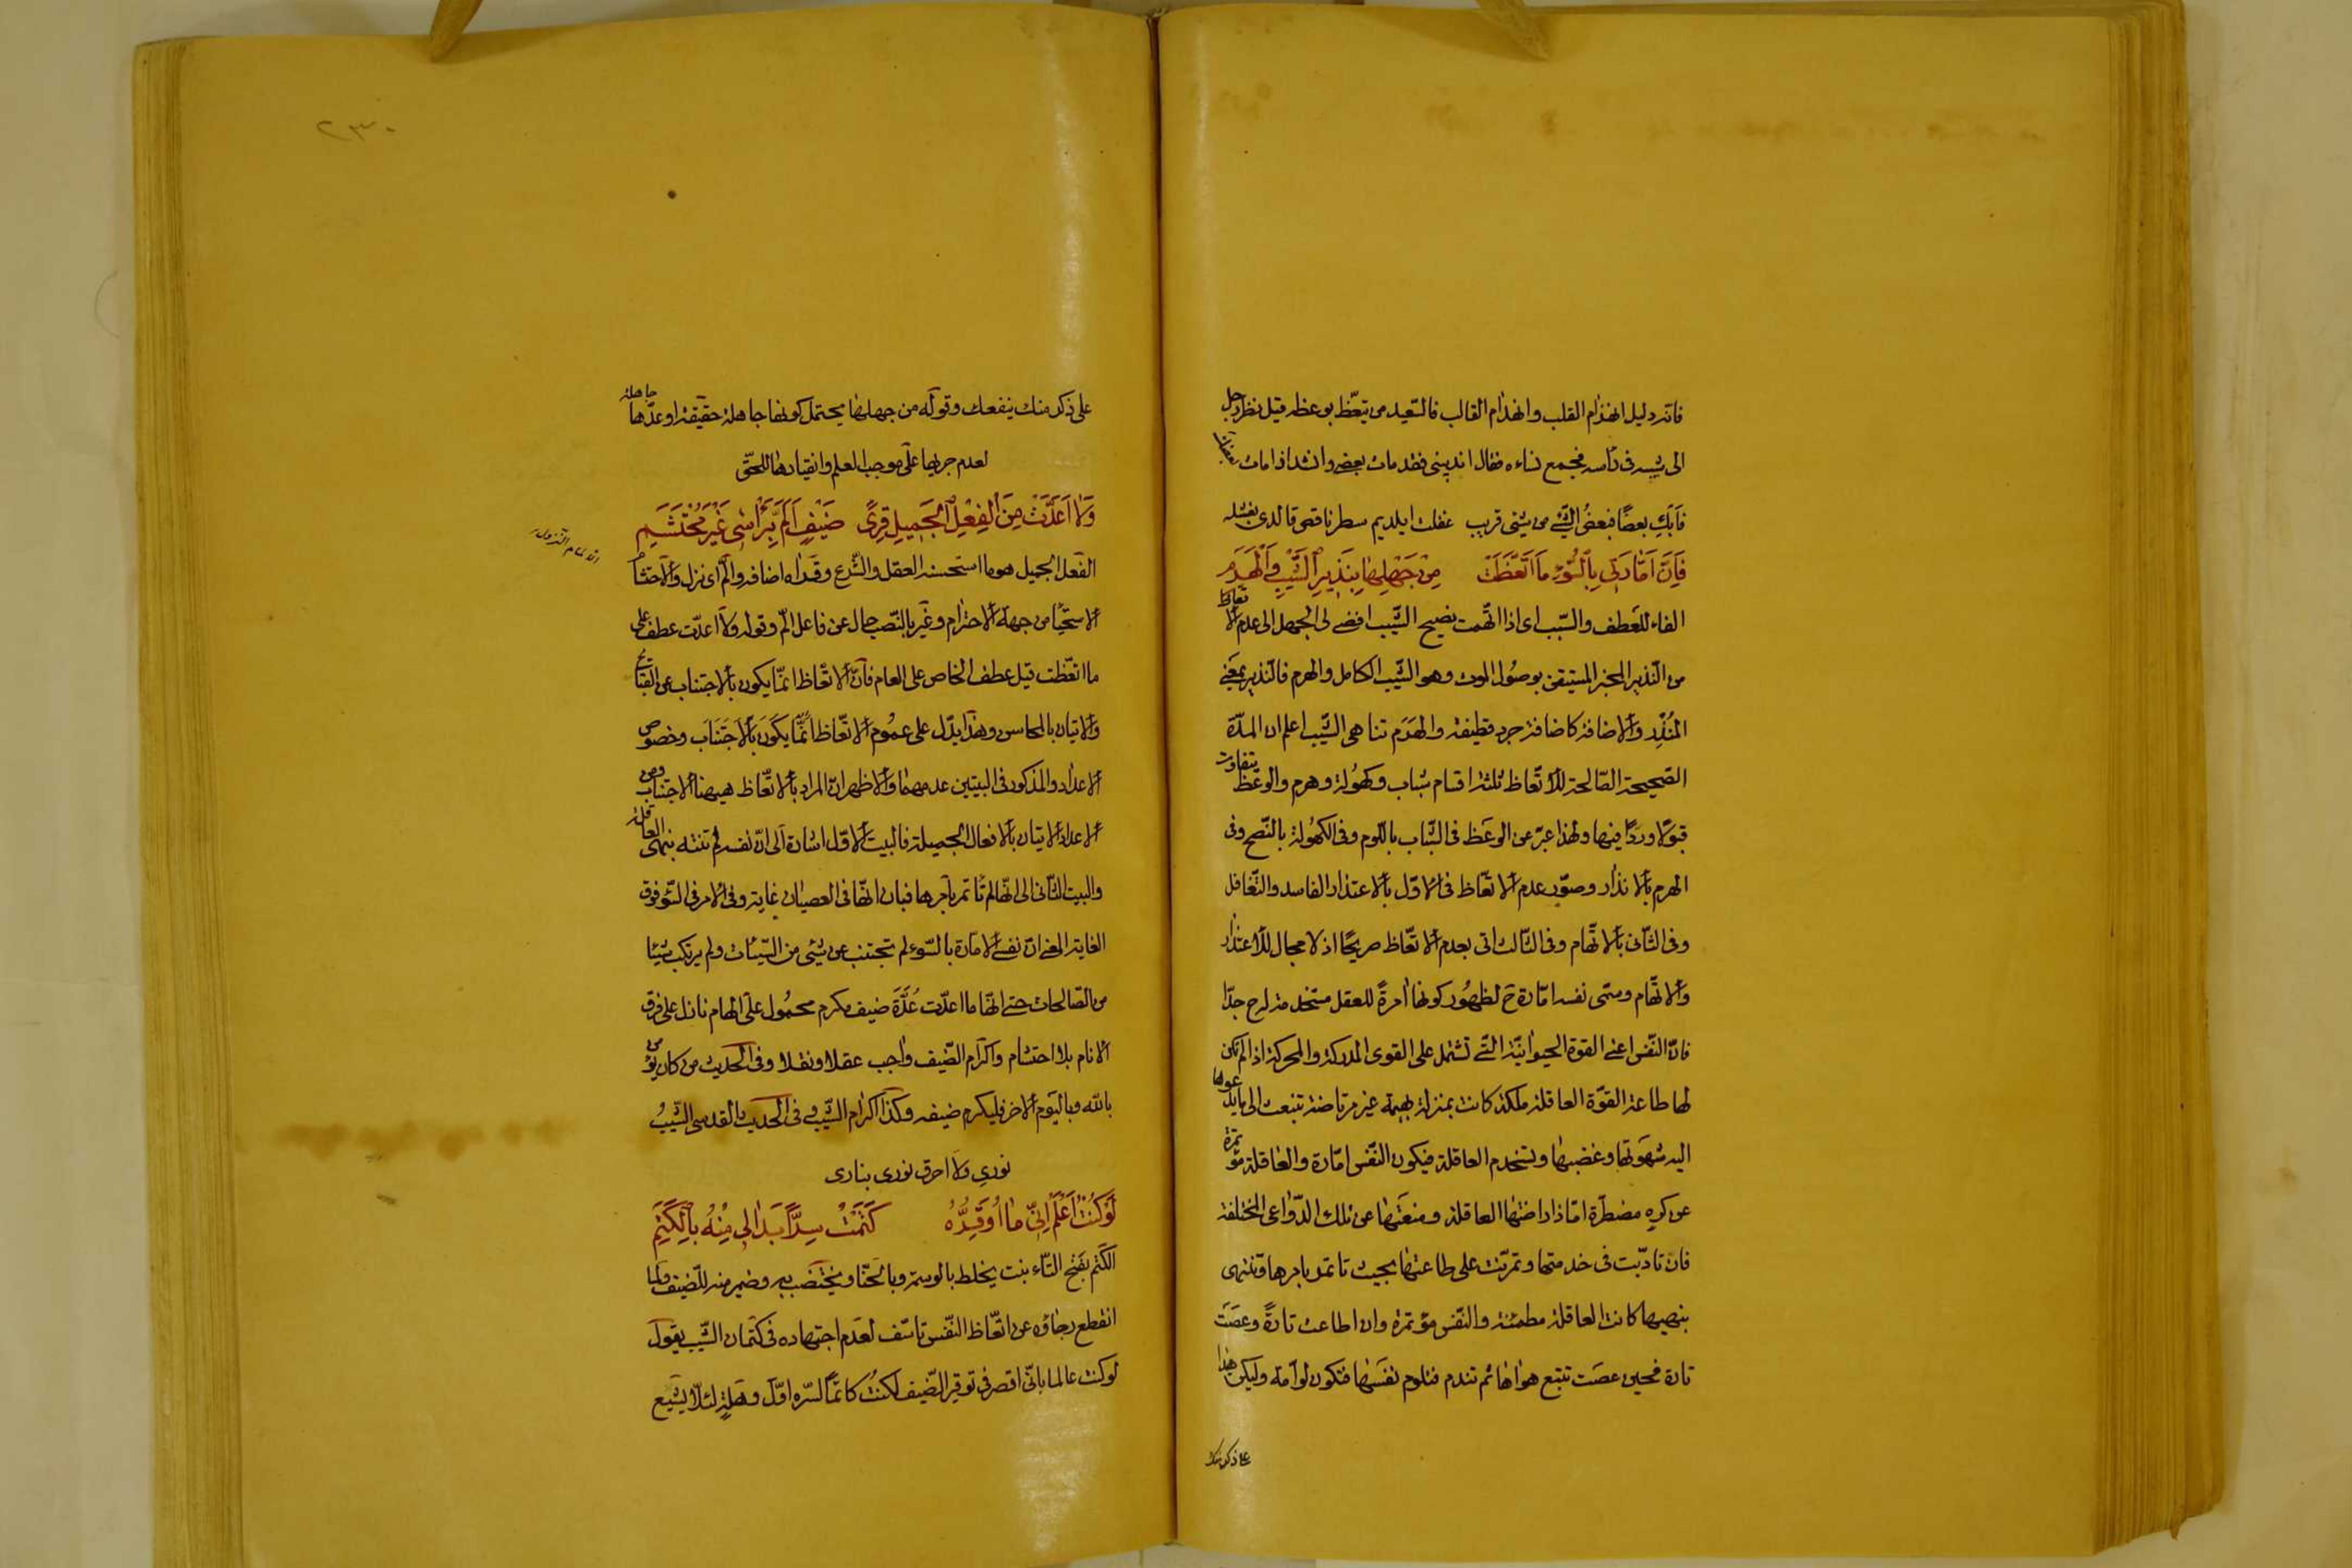 فانّه دليل انهذام القلب وانهذام القالب فالسّعيد من يتعّظ بوعظه قيل نظر رجل
الى شيبه فى رأسه فجمع نساءه فقال اندبننى فقد مات بعضى وانشد اذا مات بعضك
فآبك بعضًا فبعضُ الشّئ من شئى قريب غفلت ايلديم سطر ناقص قالدى بغسله
فَاِنَّ اَمّارَتِى بِالسُّوءِ مَا اتَّعَظَتْ مِنْ جَهْلِهَا بِنَذِيرِ الشَّيْبِ وَالْهَرَمِ
الفاء للعطف والسّبب اى اذا اتّهمت نصيح الشّيب افضى لى الجهل الى عدم الا تعاظ
من النّذير المخبر المستيقن بوصُول الموت وهو الشّيب الكامل والهرم فالنّذير بمعنى
المُنذِر والاضافة كاضافة جرد قطيفة والهَرَم تناهى الشّيب اعلم ان المدّة
الصّحيحة الصّالحة للاتّعاظ ثلثة اقسام شباب وكهُولة وهرم والوعظ يتفاوت
قبَولا وردًّا فيها ولهذا عبّر عن الوعَظ فى الشّباب باللّوم وفى الكهُولة بالنّصح وفى
الهرم بالانذار وصوّر عدم الاتّعاظ فى الاوّل بالاعتذار الفاسد والتّغافل
وفى الثّانى بالاتّهام وفى الثّالث اتى بعدم الاتّعاظ صريحًا اذ لا مجال للاعتذار
والاتّهام وسمّى نفسه امّارة ح لظهُور كونها آمرةً للعقل جدّا
فانّ النّفس اعنى القوة الحيوانيّة الّتى تشتمل على القوى المدركة والمحركة اذا لم تكن
لها طاعة القوّة العاقلة ملكة كانت بمنزلة بهيمة غير مرتاضة تنبعث الى ما يدعوها
اليه شهَوتها وغضبها وتستخدم العاقلة فيكون النّفس امّارة والعاقلة مؤتمرة
عن كرهٍ مضطرّة امّا اذا راضتها العاقلة ومنعَتها عن تلك الدّواعى المختلفة
فان تادّبت فى خدمتها وتمرّنت على طاعتها بحيث تاتمر بامرها وتنتهى
بنهيها كانت العاقلة مطمئنة والنّفس مؤتمرة وان اطاعت تارةً وعصَت
تارة فحين عصَت تتبع هواها ثم تندم فتلوم نفَسَها فتكون لوّامة وليكن هذا
على ذكر منك
٢٣٠
على ذكر منك ينفعك وقوله من جهلها يحتمل كونها جاهلة حقيقة او عدّها جاهلة
لعدم جريها على موجب العلم وانقيادها للحقّ
وَلَا اَعَدَّتْ مِنَ الْفِعْلِ الْجَمِيلِ قِرَى ضَيْفٍ اَلَمَّ بِرَأْسِى غَيْرَ مُحْتَشِمِ
الفعل الجميل هو ما استحسنه العقل والشّرع وقَراه اضافه والمّ اى نزل والاحتشام
الاستحيا من جهة الاحترام وغَير بالنّصب حال عن فاعل المّ وقوله ولا اعدّت عطف على
ما اتّعظت قيل عطف الخاص على العام فانّ الاتّعاظ انمّا يكون بالاجتناب عن القبايح
والاتيان بالمحاسن وهذا يدّل على عموُم الاتّعاظ انّما يكون بالاجتناب وخصوص
الاعداد والمذكور فى البيتين عدمهما والاظهر انّ المراد بالاتّعاظ هيهنا الاجتناب ومن
الاعداد الاتيان بالافعال الجميلة فالبيت الاوّل اشارة الى انّ نفسه لم تنته بنهى العاقلة
والبيت الثّانى الى انّها لم تأتمر بامرها فبان انّها فى العصيان غاية وفى الامر فى السّوء فوق
الغاية المعنى انّ نفسى الامّارة بالسّوء لم تجتنب عن شئى من السّيئات ولم يرتكب شيئا
من الصّالحات حتى انّها ما اعدّت عُدّة ضيف مكرم محموُل على الهام نازل على فرق
الانام بلا احتشام واكرام الضّيف واجب عقلا ونقلا وفى الحديث من كان يؤمن
بالله وباليَوم الاخر فليكرم ضيفه وكذا اكرام الشّيب وفى الحديث القدسى الشّيب
نورى ولا احرق نورى بنارى
لَوْ كُنْتُ اَعْلَمُ اَنِّى مَا اُوَقِّرُهُ كَتَمْتُ سِرًّا بَدَا لِى مِنْهُ بِالْكَتَمِ
الكتم بفتح التّاء نبت يخلط بالوسمة وبالحنّا ويختضَب به وضمير منه للضيف ولما
انقطع رجاؤه عن اتّعاظ النّفس تاسّف لعدم اجتهاده فى كتمان الشّيب يقول
لو كنت عالما بانّى اقصر فى توقير الضّيف لكنتُ كاتمًا لسرّه اوّل وهَلةٍ لئلّا يشيع